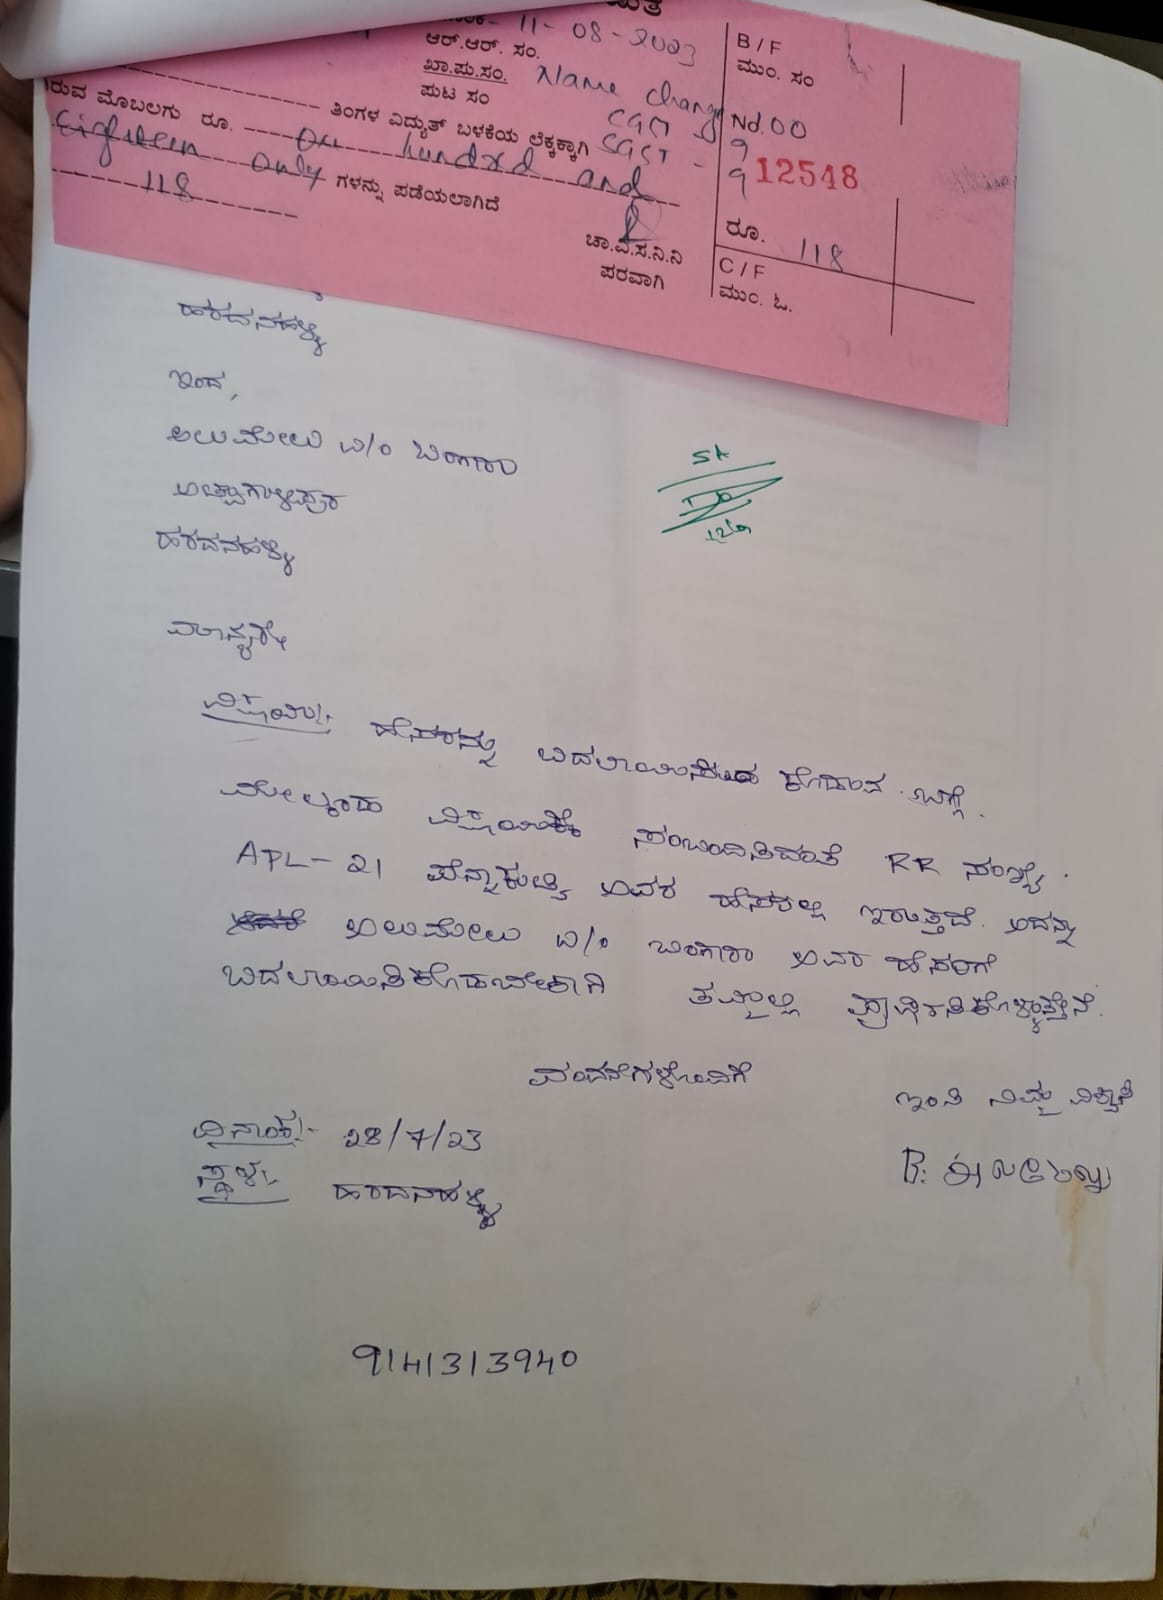 11-08-2023
ಆರ್.ಆರ್. ಸಂ.
ಖಾ.ಪು.ಸಂ. Name change
ಪುಟ ಸಂ
CGST 9
ತಿಂಗಳ ವಿದ್ಯುತ್ ಬಳಕೆಯ ಲೆಕ್ಕಕ್ಕಾಗಿ SGST - 9
ರುವ ಮೊಬಲಗು ರೂ. One hundred and
Eighteen only ಗಳನ್ನು ಪಡೆಯಲಾಗಿದೆ
118
ಚಾ.ವಿ.ಸ.ನಿ.ನಿ
ಪರವಾಗಿ
B / F
ಮುಂ. ಸಂ
No. 00
12548
ರೂ. 118
C / F
ಮುಂ. ಓ.
ಹರದನಹಳ್ಳಿ
ಇಂದ,
ಅಲುಮೇಲು W/o ಬಂಗಾರು
ಹರದನಹಳ್ಳಿ
ಮಾನ್ಯರೇ
ವಿಷಯ:- ಹೆಸರನ್ನು ಬದಲಾಯಿಸಿ ಕೊಡುವ ಬಗ್ಗೆ.
ಮೇಲ್ಕಂಡ ವಿಷಯಕ್ಕೆ ಸಂಬಂದಿಸಿದಂತೆ RR ಸಂಖ್ಯೆ.
APL-21 ಅವರ ಹೆಸರಲ್ಲಿ ಇರುತ್ತದೆ. ಅದನ್ನು
ಅಲುಮೇಲು W/o ಬಂಗಾರು ಅವರ ಹೆಸರಿಗೆ
ಬದಲಾಯಿಸಿಕೊಡಬೇಕಾಗಿ ತಮ್ಮಲ್ಲಿ ಪ್ರಾರ್ಥಿಸಿಕೊಳ್ಳುತ್ತೇನೆ.
ವಂದನೆಗಳೊಂದಿಗೆ
ಇಂತಿ ನಿಮ್ಮ ವಿಶ್ವಾಸಿ
ದಿನಾಂಕ:- 28/7/23
ಸ್ಥಳ:- ಹರದನಹಳ್ಳಿ
9141313940